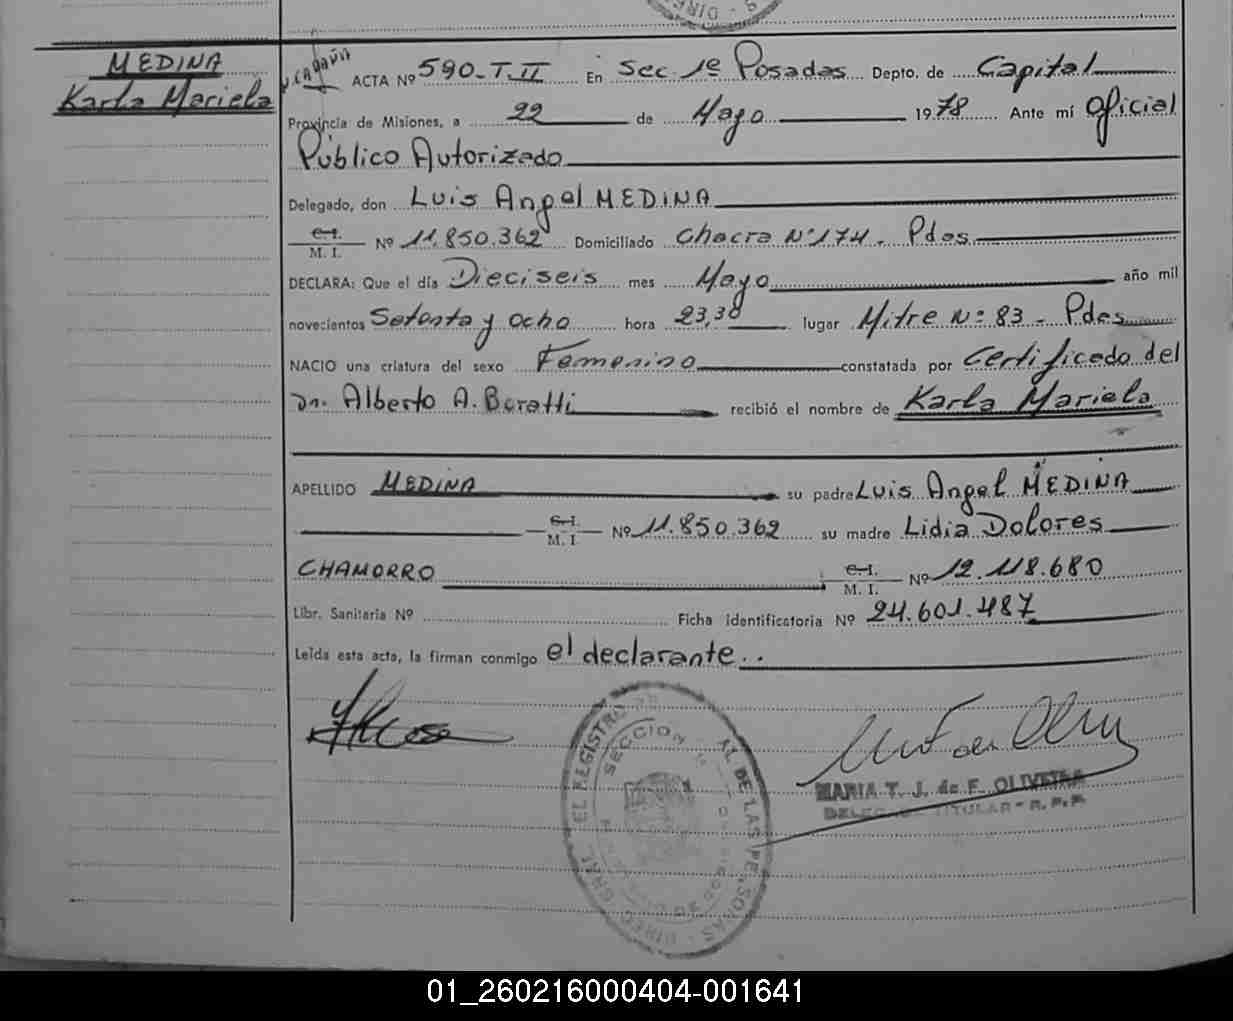 MEDINA
Karla Mariela
ACTA Nº 590-T.II En Sec. 1º Posadas Depto. de Capital
Provincia de Misiones, a 22 de Mayo 1978 Ante mí Oficial
Público Autorizado
Delegado, don Luis Angel MEDINA
C.I. M. I. Nº 11.850.362 Domiciliado Chacra Nº 174 - Pdas
DECLARA: Que el día Dieciseis mes Mayo año mil
novecientos Setenta y ocho hora 23,30 lugar Mitre Nº 83 - Pdas
NACIO una criatura del sexo Femenino constatada por Certificado del
Dr. Alberto A. Baratti recibió el nombre de Karla Mariela
APELLIDO MEDINA su padre Luis Angel MEDINA
C.I. M. I. Nº 11.850.362 su madre Lidia Dolores
CHAMORRO C.I. M. I. Nº 12.118.680
Libr. Sanitaria Nº Ficha identificatoria Nº 24.601.487
Leída esta acta, la firman conmigo el declarante..
SECCION
MARIA T. J. de F. OLIVEIRA
TITULAR - R. P. P.
01_260216000404-001641